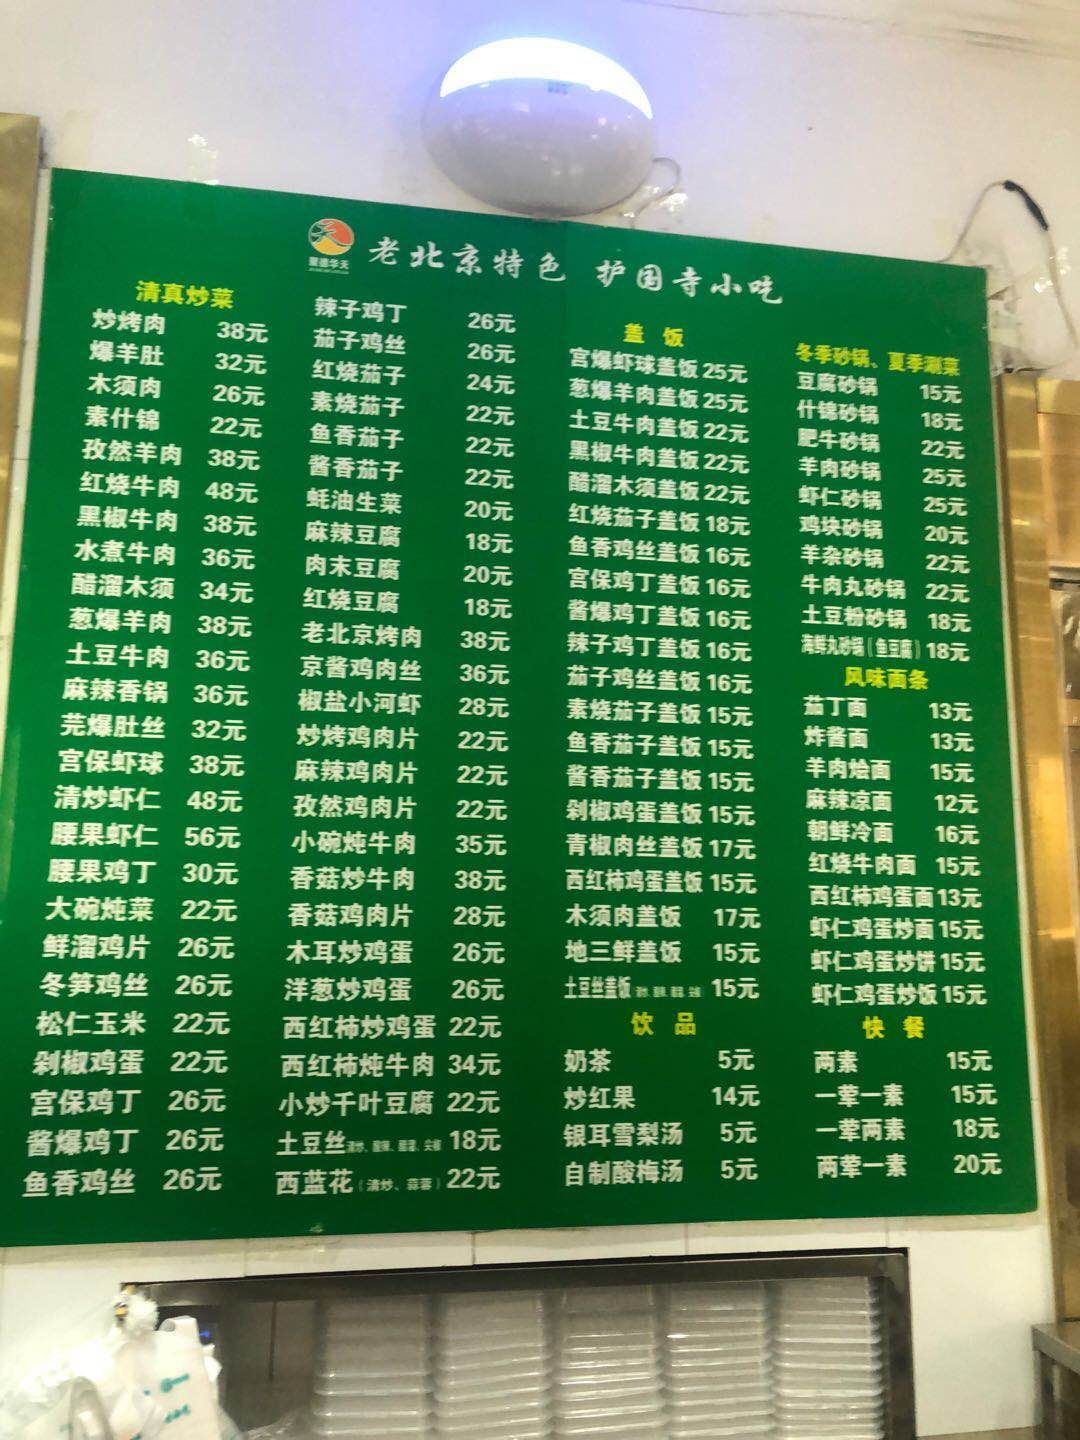 聚德华天
老北京特色 护国寺小吃
清真炒菜
炒烤肉 38元
爆羊肚 32元
木须肉 26元
素什锦 22元
孜然羊肉 38元
红烧牛肉 48元
黑椒牛肉 38元
水煮牛肉 36元
醋溜木须 34元
葱爆羊肉 38元
土豆牛肉 36元
麻辣香锅 36元
芫爆肚丝 32元
宫保虾球 38元
清炒虾仁 48元
腰果虾仁 56元
腰果鸡丁 30元
大碗炖菜 22元
鲜溜鸡片 26元
冬笋鸡丝 26元
松仁玉米 22元
剁椒鸡蛋 22元
宫保鸡丁 26元
酱爆鸡丁 26元
鱼香鸡丝 26元
辣子鸡丁 26元
茄子鸡丝 26元
红烧茄子 24元
素烧茄子 22元
鱼香茄子 22元
酱香茄子 22元
蚝油生菜 20元
麻辣豆腐 18元
肉末豆腐 20元
红烧豆腐 18元
老北京烤肉 38元
京酱鸡肉丝 36元
椒盐小河虾 28元
炒烤鸡肉片 22元
麻辣鸡肉片 22元
孜然鸡肉片 22元
小碗炖牛肉 35元
香菇炒牛肉 38元
香菇鸡肉片 28元
木耳炒鸡蛋 26元
洋葱炒鸡蛋 26元
西红柿炒鸡蛋 22元
西红柿炖牛肉 34元
小炒千叶豆腐 22元
土豆丝 18元
西蓝花（清炒、蒜蓉） 22元
盖饭
宫爆虾球盖饭 25元
葱爆羊肉盖饭 25元
土豆牛肉盖饭 22元
黑椒牛肉盖饭 22元
醋溜木须盖饭 22元
红烧茄子盖饭 18元
鱼香鸡丝盖饭 16元
宫保鸡丁盖饭 16元
酱爆鸡丁盖饭 16元
辣子鸡丁盖饭 16元
茄子鸡丝盖饭 16元
素烧茄子盖饭 15元
鱼香茄子盖饭 15元
酱香茄子盖饭 15元
剁椒鸡蛋盖饭 15元
青椒肉丝盖饭 17元
西红柿鸡蛋盖饭 15元
木须肉盖饭 17元
地三鲜盖饭 15元
土豆丝盖饭 15元
饮品
奶茶 5元
炒红果 14元
银耳雪梨汤 5元
自制酸梅汤 5元
冬季砂锅、夏季涮菜
豆腐砂锅 15元
什锦砂锅 18元
肥牛砂锅 22元
羊肉砂锅 25元
虾仁砂锅 25元
鸡块砂锅 20元
羊杂砂锅 22元
牛肉丸砂锅 22元
土豆粉砂锅 18元
海鲜丸砂锅（鱼豆腐）18元
风味面条
茄丁面 13元
炸酱面 13元
羊肉烩面 15元
麻辣凉面 12元
朝鲜冷面 16元
红烧牛肉面 15元
西红柿鸡蛋面 13元
虾仁鸡蛋炒面 15元
虾仁鸡蛋炒饼 15元
虾仁鸡蛋炒饭 15元
快餐
两素 15元
一荤一素 15元
一荤两素 18元
两荤一素 20元